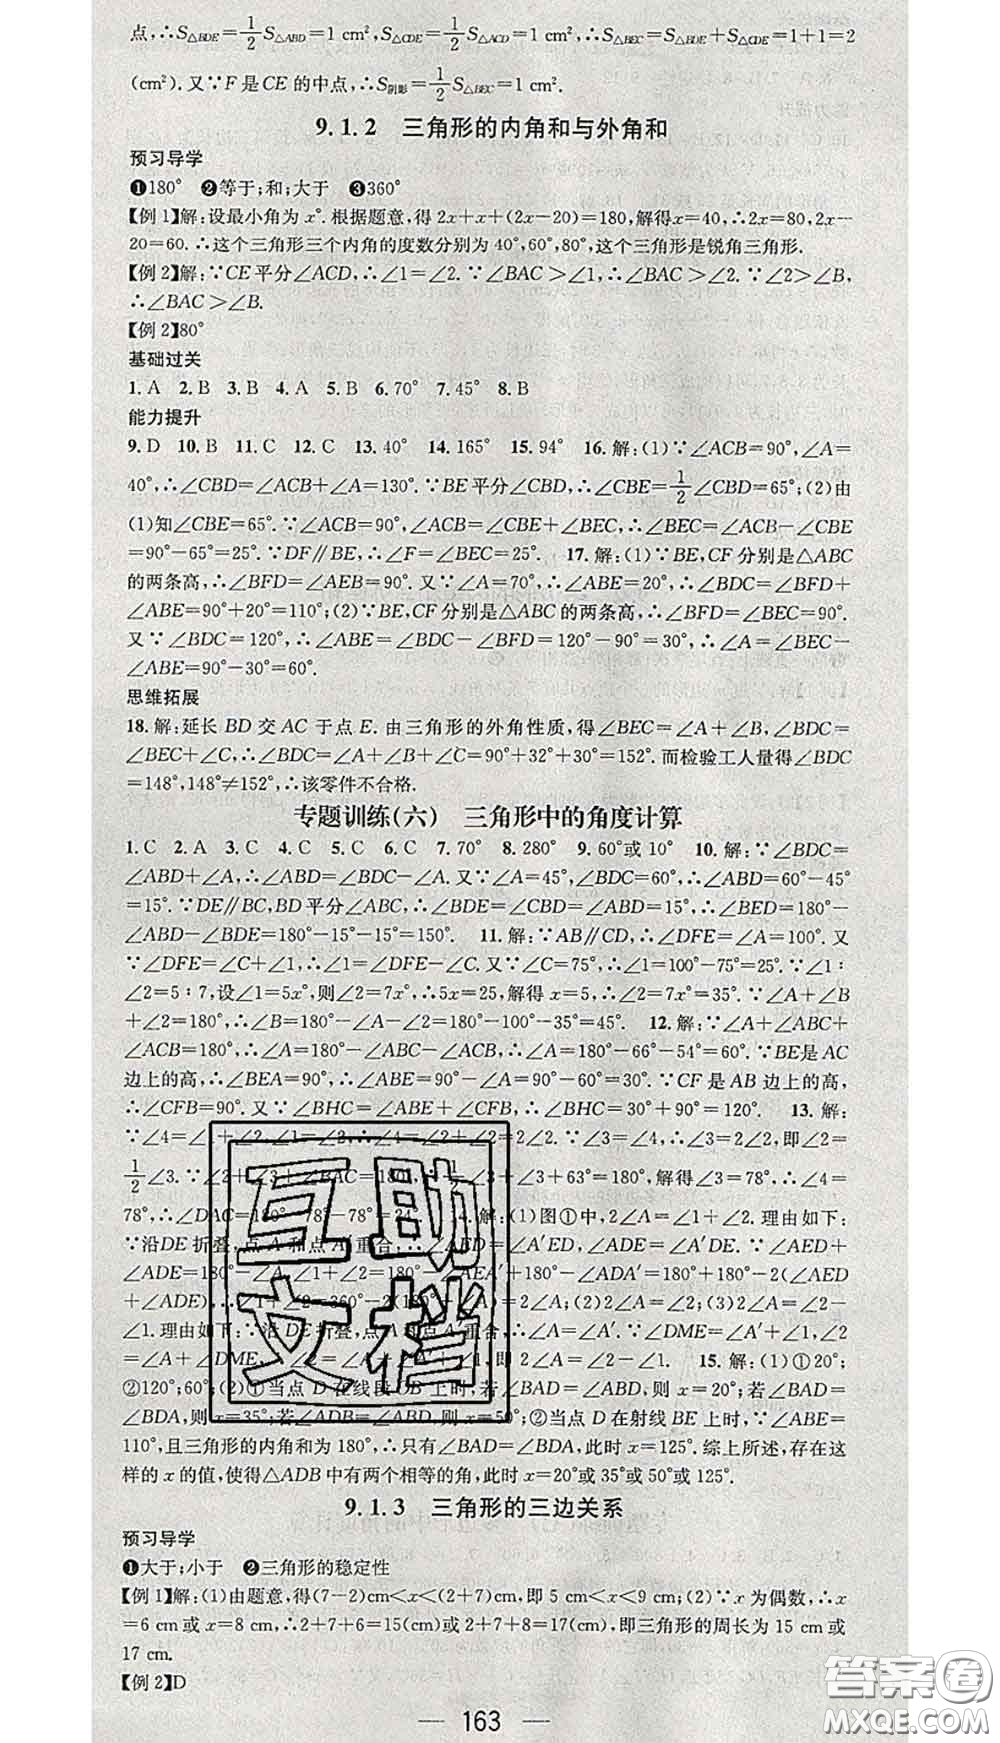 点,∴S△BDE=1/2S△ABD=1 cm²,S△CDE=1/2S△ACD=1 cm²,∴S△BEC=S△BDE+S△CDE=1+1=2
(cm²).又∵F是CE的中点,∴S阴影=1/2S△BEC=1 cm².
9.1.2 三角形的内角和与外角和
预习导学
❶180° ❷等于;和;大于 ❸360°
【例1】解:设最小角为x°.根据题意,得2x+x+(2x-20)=180,解得x=40,∴2x=80,2x-
20=60.∴这个三角形三个内角的度数分别为40°,60°,80°,这个三角形是锐角三角形.
【例2】解:∵CE平分∠ACD,∴∠1=∠2.∵∠BAC>∠1,∴∠BAC>∠2.∵∠2>∠B,
∴∠BAC>∠B.
【例2】80°
基础过关
1.A 2.B 3.B 4.A 5.B 6.70° 7.45° 8.B
能力提升
9.D 10.B 11.C 12.C 13.40° 14.165° 15.94° 16.解:(1)∵∠ACB=90°,∠A=
40°,∴∠CBD=∠ACB+∠A=130°.∵BE平分∠CBD,∴∠CBE=1/2∠CBD=65°;(2)由
(1)知∠CBE=65°.∵∠ACB=90°,∠ACB=∠CBE+∠BEC,∴∠BEC=∠ACB-∠CBE
=90°-65°=25°.∵DF∥BE,∴∠F=∠BEC=25°. 17.解:(1)∵BE,CF分别是△ABC
的两条高,∴∠BFD=∠AEB=90°.又∵∠A=70°,∴∠ABE=20°,∴∠BDC=∠BFD+
∠ABE=90°+20°=110°;(2)∵BE,CF分别是△ABC的两条高,∴∠BFD=∠BEC=90°.
又∵∠BDC=120°,∴∠ABE=∠BDC-∠BFD=120°-90°=30°,∴∠A=∠BEC-
∠ABE=90°-30°=60°.
思维拓展
18.解:延长BD交AC于点E.由三角形的外角性质,得∠BEC=∠A+∠B,∠BDC=
∠BEC+∠C,∴∠BDC=∠A+∠B+∠C=90°+32°+30°=152°.而检验工人量得∠BDC
=148°,148°≠152°,∴该零件不合格.
专题训练(六) 三角形中的角度计算
1.C 2.A 3.C 4.C 5.C 6.C 7.70° 8.280° 9.60°或10° 10.解:∵∠BDC=
∠ABD+∠A,∴∠ABD=∠BDC-∠A.又∵∠A=45°,∠BDC=60°,∴∠ABD=60°-45°
=15°.∵DE∥BC,BD平分∠ABC,∴∠BDE=∠CBD=∠ABD=15°,∴∠BED=180°-
∠ABD-∠BDE=180°-15°-15°=150°. 11.解:∵AB∥CD,∴∠DFE=∠A=100°.又
∵∠DFE=∠C+∠1,∴∠1=∠DFE-∠C.又∵∠C=75°,∴∠1=100°-75°=25°.∵∠1:
∠2=5:7,设∠1=5x°,则∠2=7x°,∴5x=25,解得x=5,∴∠2=7x°=35°.∵∠A+∠B
+∠2=180°,∴∠B=180°-∠A-∠2=180°-100°-35°=45°. 12.解:∵∠A+∠ABC+
∠ACB=180°,∴∠A=180°-∠ABC-∠ACB,∴∠A=180°-66°-54°=60°.∵BE是AC
边上的高,∴∠BEA=90°,∴∠ABE=90°-60°=30°.∵CF是AB边上的高,
∴∠CFB=90°.又∵∠BHC=∠ABE+∠CFB,∴∠BHC=30°+90°=120°. 13.解:
∵∠4=∠1+∠2,∠1=∠2,∴∠4=∠2+∠2=2∠2.∵∠3=∠4,∴∠3=2∠2,即∠2=
1/2∠3.∵∠2+∠3+∠BAC=180°,∴1/2∠3+∠3+63°=180°,解得∠3=78°,∴∠4=
78°,∴∠DAC=180°-78°-78°=24°. 14.解:(1)图①中,2∠A=∠1+∠2.理由如下:
∵沿DE折叠,点A和点A′重合,∴∠AED=∠A′ED,∠ADE=∠A′DE.∵∠AED+
∠ADE=180°-∠A,∠1+∠2=180°-∠AEA′+180°-∠ADA′=180°+180°-2(∠AED
+∠ADE),∴∠1+∠2=360°-2(180°-∠A)=2∠A;(2)2∠A=∠2;(3)2∠A=∠2-
∠1.理由如下:∵沿DE折叠,点A和点A′重合,∴∠A=∠A′.∵∠DME=∠A′+∠1,∠2
=∠A+∠DME,∴∠2=∠A+∠A′+∠1,即2∠A=∠2-∠1. 15.解:(1)①20°;
②120°;60°;(2)①当点D在线段OB上时,若∠BAD=∠ABD,则x=20°;若∠BAD=
∠BDA,则x=35°;若∠ADB=∠ABD,则x=50°;②当点D在射线BE上时,∵∠ABE=
110°,且三角形的内角和为180°,∴只有∠BAD=∠BDA,此时x=125°.综上所述,存在这
样的x的值,使得△ADB中有两个相等的角,此时x=20°或35°或50°或125°.
9.1.3 三角形的三边关系
预习导学
❶大于;小于 ❷三角形的稳定性
【例1】解:(1)由题意,得(7-2)cm<x<(2+7)cm,即5 cm<x<9 cm;(2)∵x为偶数,∴x
=6 cm或x=8 cm,∴2+7+6=15(cm)或2+7+8=17(cm),即三角形的周长为15 cm或
17 cm.
【例2】D
163
互助
文档
答案圈
MXQE.COM